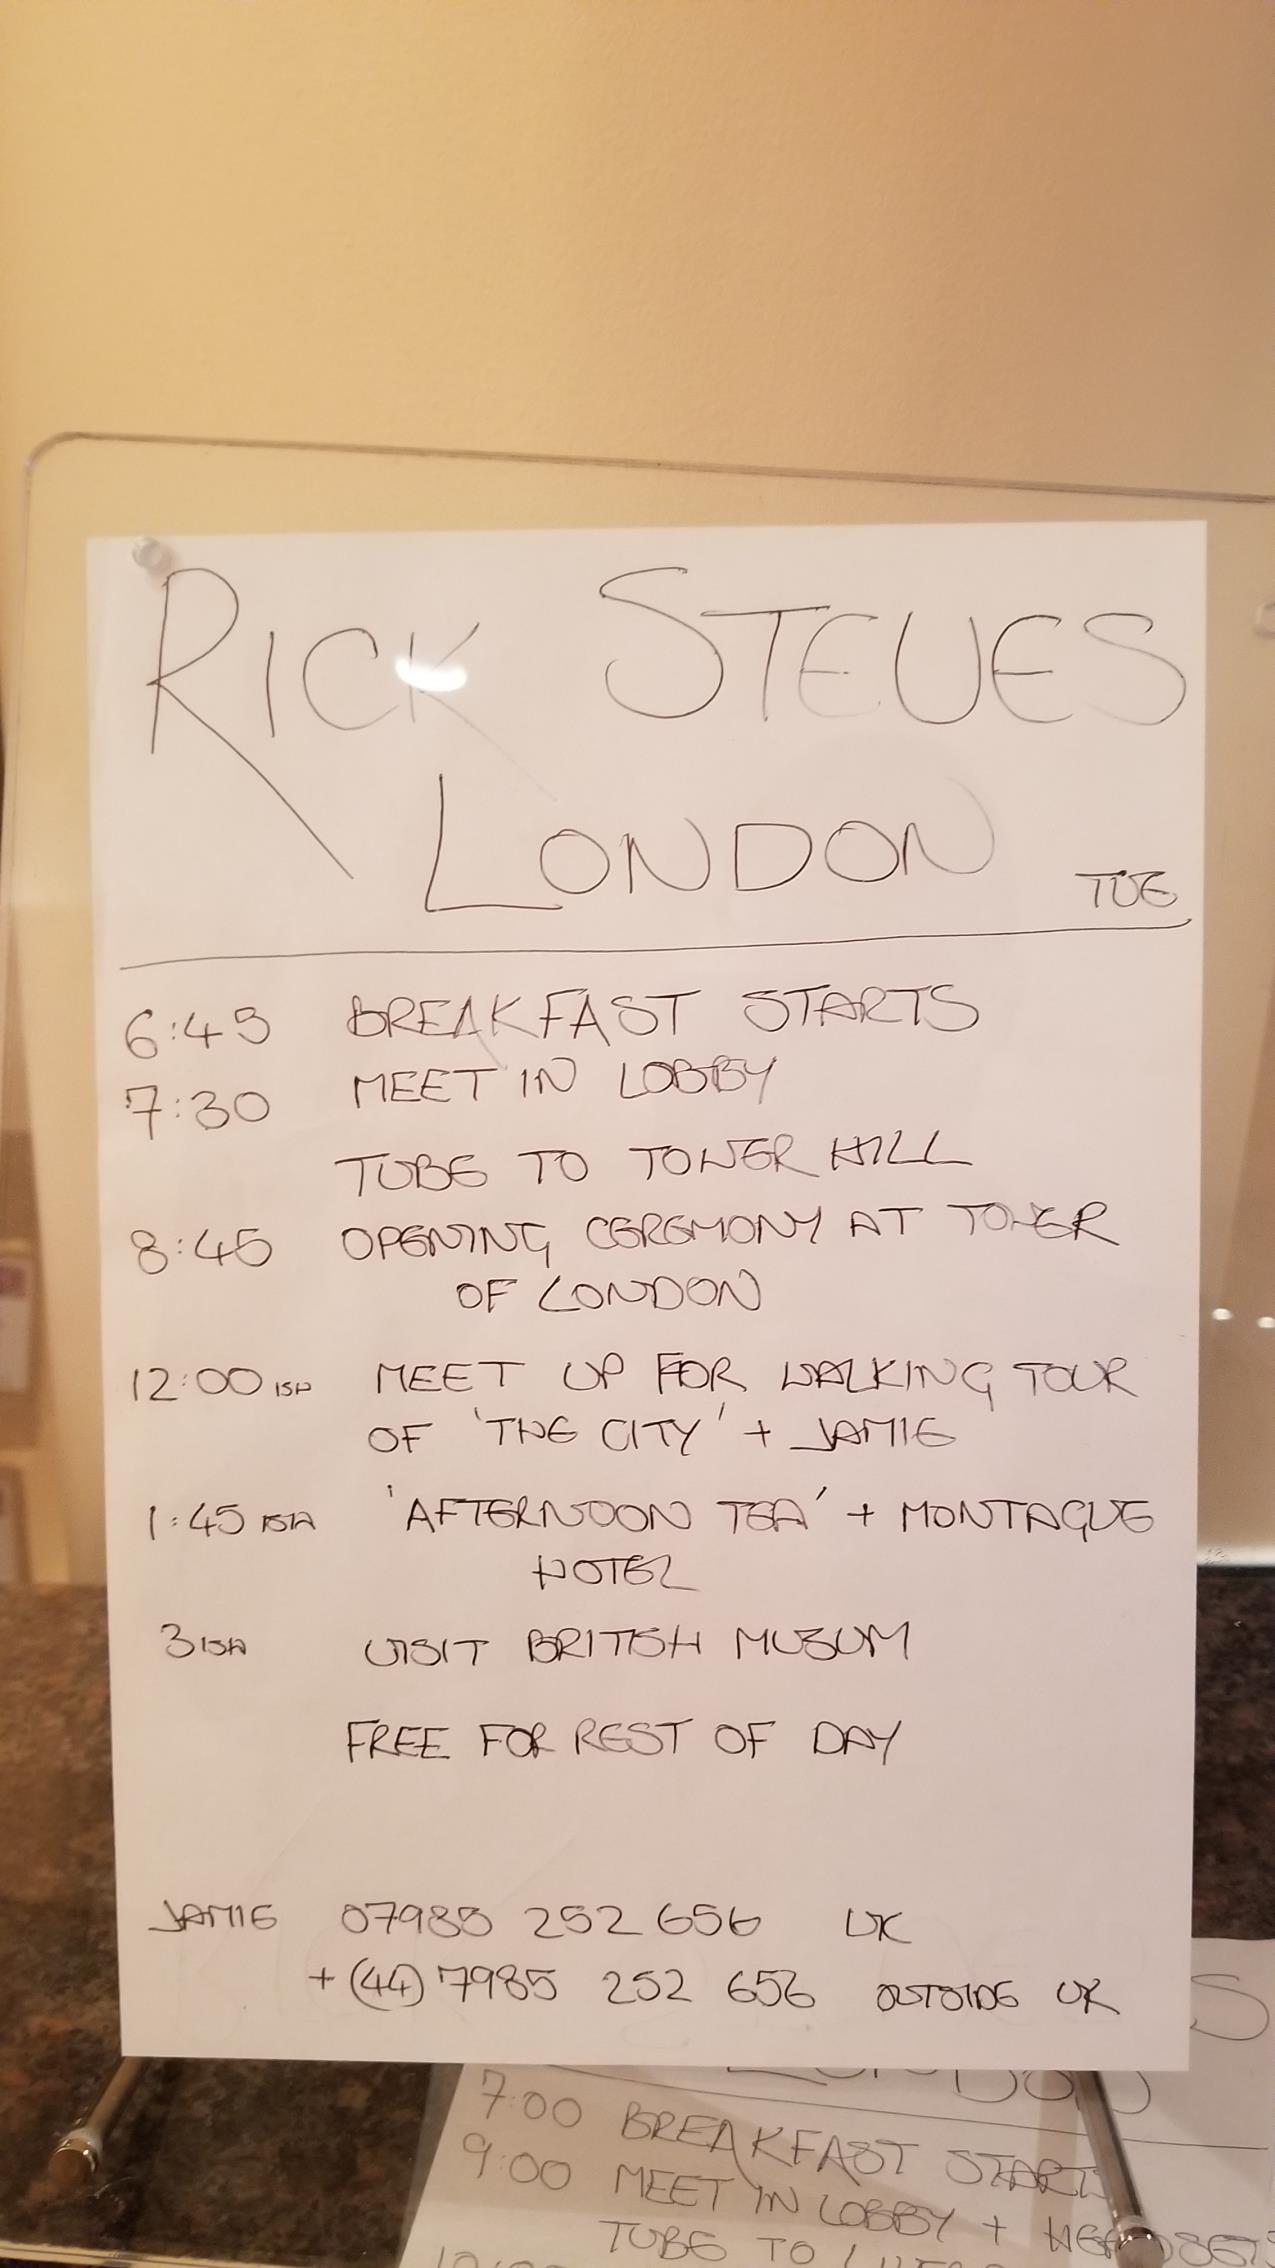 RICK STEVES
LONDON
TUE
6:45 BREAKFAST STARTS
7:30 MEET IN LOBBY
TUBE TO TOWER HILL
8:45 OPENING CEREMONY AT TOWER
OF LONDON
12:00 ISH MEET UP FOR WALKING TOUR
OF 'THE CITY' + JAMIE
1:45 ISH 'AFTERNOON TEA' + MONTAGUE
HOTEL
3 ISH VISIT BRITISH MUSUM
FREE FOR REST OF DAY
JAMIE 07985 252 656 UK
+(44) 7985 252 656 OUTSIDE UK
S
LONDON
7:00 BREAKFAST STARTS
9:00 MEET IN LOBBY +
TUBE TO